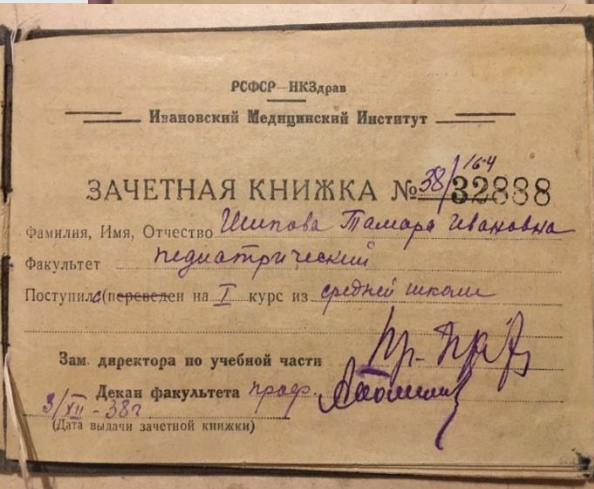 РСФСР—НКЗдрав
Ивановский Медицинский Институт
ЗАЧЕТНАЯ КНИЖКА № 38/164 32888
Фамилия, Имя, Отчество Шипова Тамара Ивановна
Факультет педиатрический
Поступила (переведен на I курс из средней школы
Зам. директора по учебной части
Декан факультета проф.
3/XII-38г
(Дата выдачи зачетной книжки)